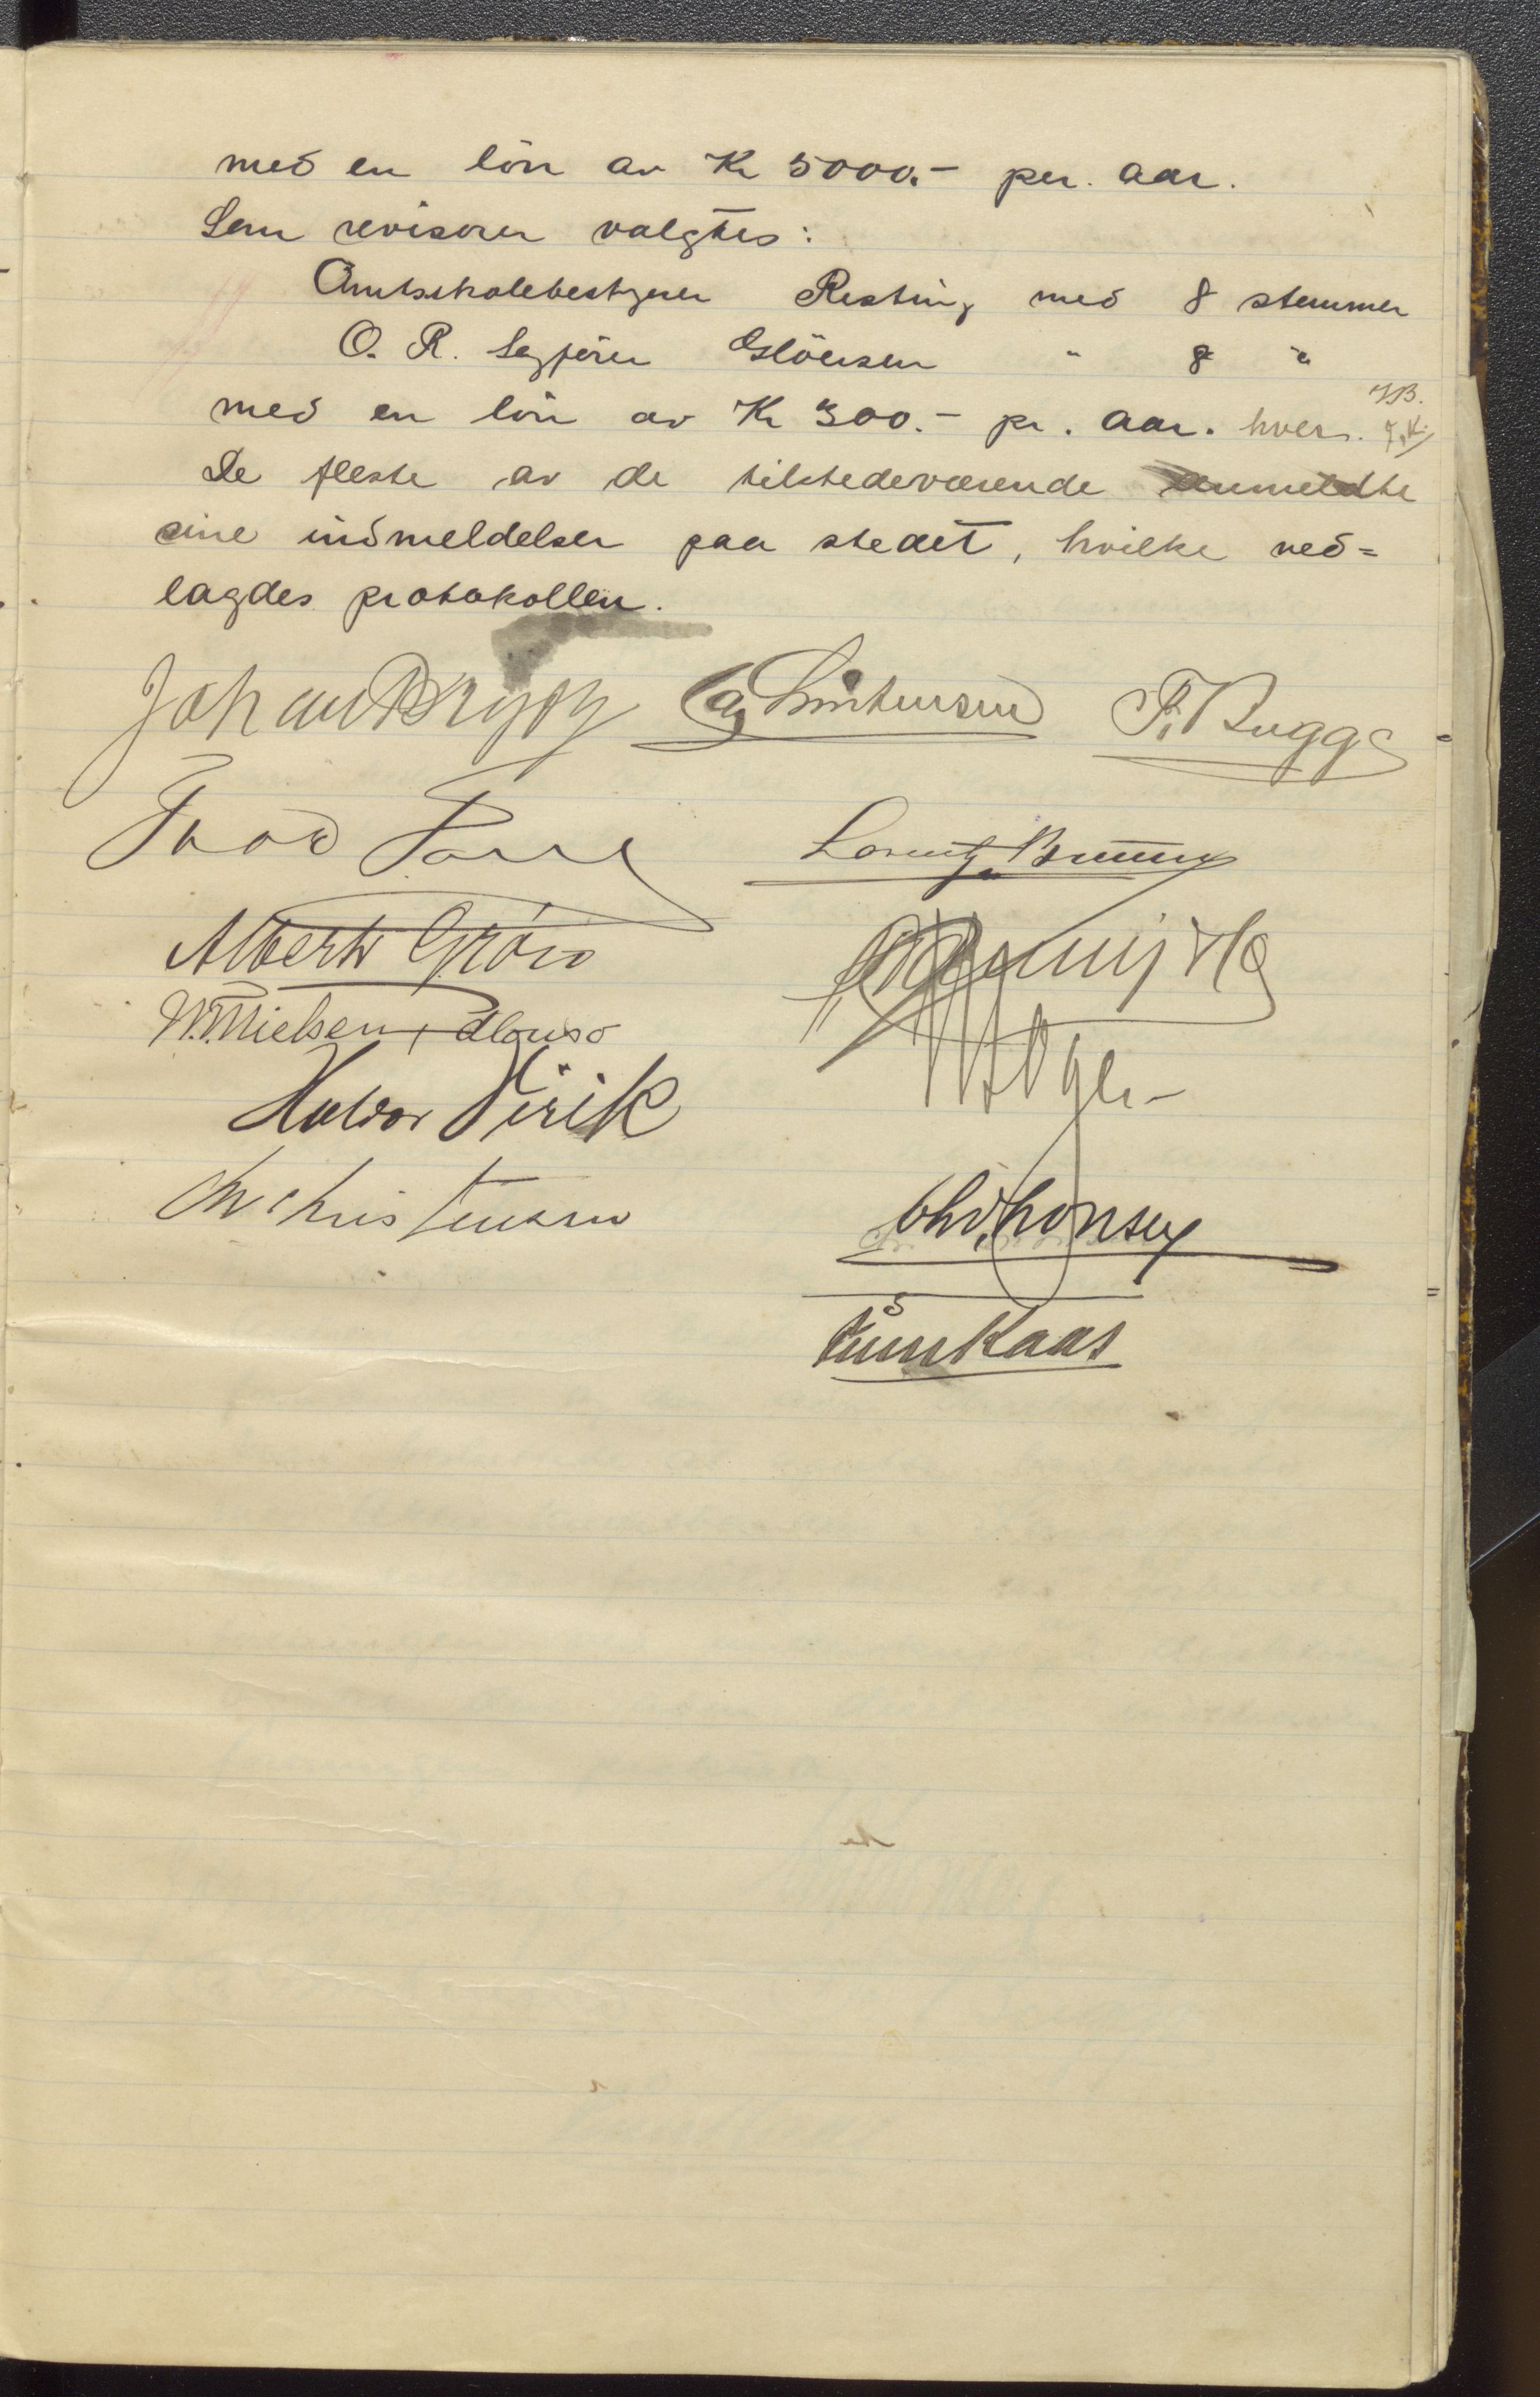 med en lön av Kr 5000.- per. aar.
Som revisorer valgtes:
Amtskolebestyrer Resting med 8 stemmer
O. R. Sagförer Glöersen " 8 "
med en lön av Kr 300.- pr. aar. hver. JB.
De fleste av de tilstedeværende anmeldte
sine indmeldelser paa stedet, hvilke ved=
lagdes protokollen.
Johan Bryde Christensen F. Bugge
Thor
Lorentz Bruun
Albert Grøn
N. T. Nielsen, Alonso
Haldor Virik
Chr Christensen
Kaas